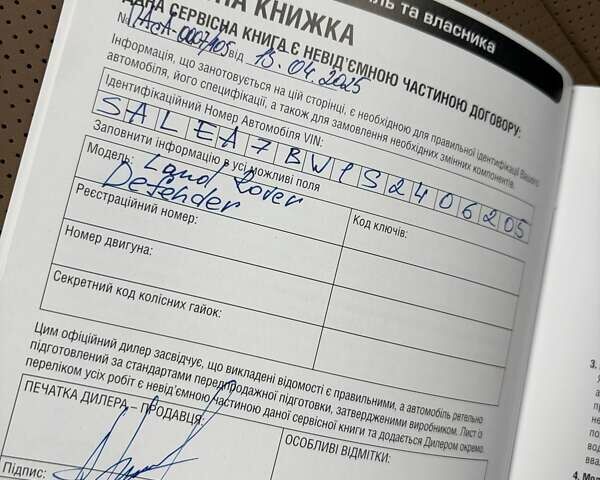 НА КНИЖКА
ль та власника
ДНА СЕРВІСНА КНИГА Є НЕВІД'ЄМНОЮ ЧАСТИНОЮ ДОГОВОРУ:
від 15.04.2025
Інформація, що занотовується на цій сторінці, є необхідною для правильної ідентифікації Вашого
автомобіля, його специфікації, а також для замовлення необхідних змінних компонентів.
Ідентифікаційний Номер Автомобіля VIN:
SALEA7BW1S2406205
Заповнити інформацію в усі можливі поля
Модель: Land Rover
Defender
Код ключів:
Реєстраційний номер:
Номер двигуна:
Секретний код колісних гайок:
Цим офіційний дилер засвідчує, що викладені відомості є правильними, а автомобіль ретельно
підготовлений за стандартами передпродажної підготовки, затвердженими виробником. Лист із
переліком усіх робіт є невід'ємною частиною даної сервісної книги та додається Дилером окремо.
ПЕЧАТКА ДИЛЕРА – ПРОДАВЦЯ:
ОСОБЛИВІ ВІДМІТКИ:
Підпис:
3.
4. Мо